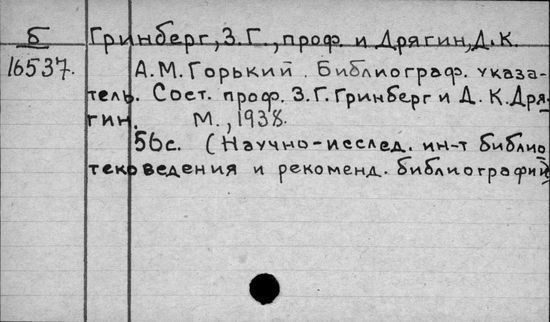 Б Гринберг, З. Г., проф. и Дрягин, Д. К.
16537. А. М. Горький. Библиограф. указа-
тель. Сост. проф. З. Г. Гринберг и Д. К. Дря-
гин. М., 1938.
56с. (Научно-исслед. ин-т библио
тековедения и рекоменд. библиографий